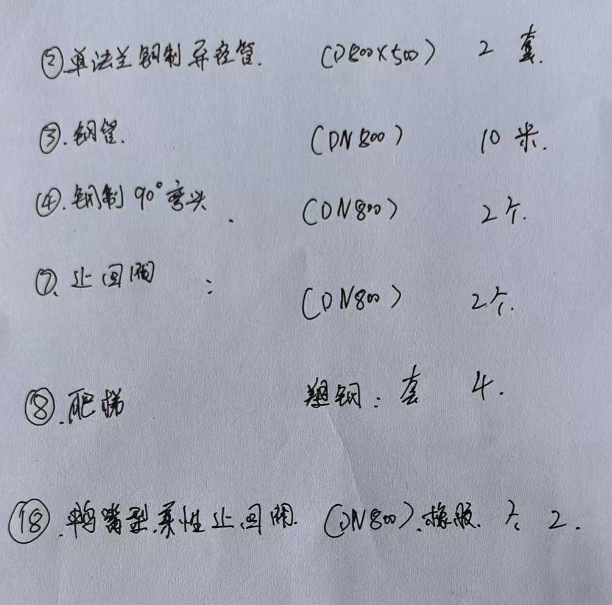 ②单法兰钢制异径管. (D800×500) 2 套.
③.钢管. (DN800) 10 米.
④.钢制90°弯头. (DN800) 2个.
⑦、止回阀: (DN800) 2个.
⑧.爬梯 塑钢:套 4.
⑱.鸭嘴型柔性止回阀. (DN800).橡胶. 个 2.